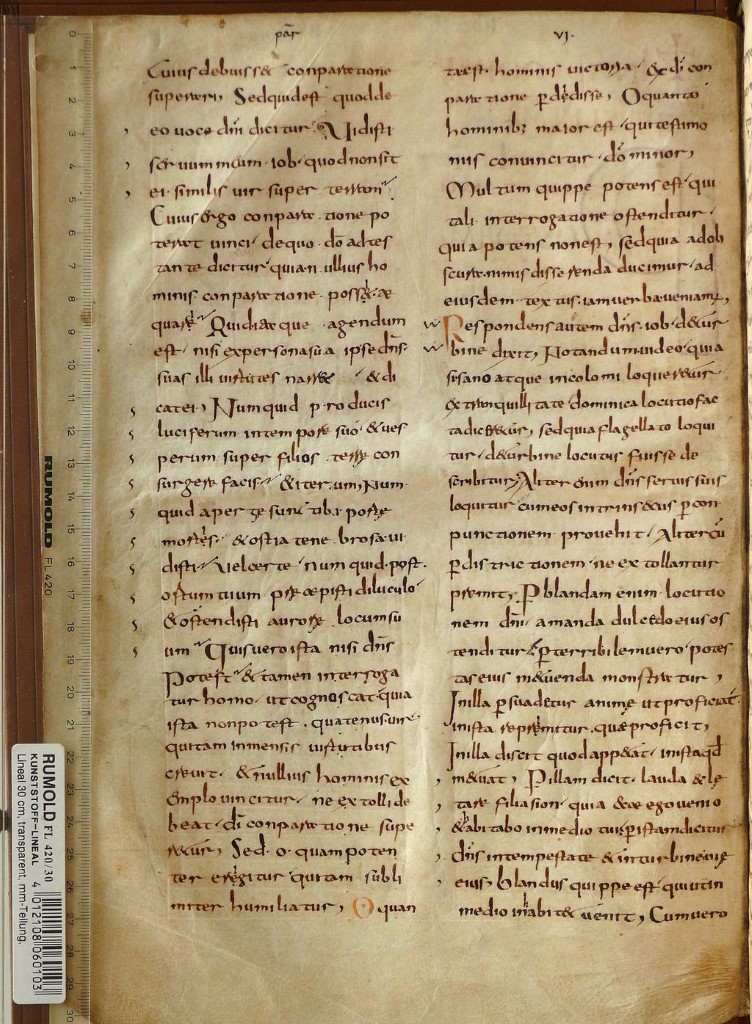 par̄
VI·
Cuius debuisset conparatione
superari, Sed quid est quod de
eo voce dn̄i dicitur, Vidisti
servum meum iob· quod non sit
ei similis vir super terram
Cuius ergo conparatione po
terat vinci· de quo dō adtes
tante dicitur quia nullius ho
minis conparatione posset ae
quari Quid itaque agendum
est· nisi ex persona sua ipse dn̄s
suas illi virtutes narret · & di
cat ei, Numquid producis
luciferum in tempore suo· & ves
perum super filios terrę con
surgere facis· & iterum, Num
quid apertę sunt tibi portę
mortis· & ostia tenebrosa vi
disti· Vel certe· numquid post
ortum tuum pręcepisti diluculo·
& ostendisti aurorę locum su
um Quis vero ista nisi dn̄s
Potest & tamen interroga
tur homo· ut cognoscat quia
ista non potest· quatenus vir
qui tam inmensis virtutibus
crevit· & nullius hominis ex
emplo vincitur· ne extolli de
beat· dī conparatione supe
retur, Sed· o· quam poten
ter erigitur qui tam subli
miter humiliatur, O quan
ta est· hominis victoria· ex dī con
paratione perdidisse, O quanto
hominib; maior est· qui testimo
niis convincitur· dō minor,
Multum quippe potens est· qui
tali interrogatione ostenditur·
quia potens non est, sed quia ad ob
scura nimis disserenda ducimur· ad
eiusdem textus iam verba veniam;
Respondens autem dn̄s iob· de tur
bine dixit, Notandum video quia
si sano atque incolomi loqueretur·
ex tranquillitate dominica locutio fac
ta diceretur, sed quia flagellato loqui
tur· de turbine locutus fuisse de
scribitur, Aliter enim dn̄s servis suis
loquitur cum eos intrinsecus per con
punctionem provehit· Aliter cū
per districtionem· ne extollantur
premit, P blandam enim locutio
nem dn̄i· amanda dulcedo eius os
tenditur, per terribilem vero· potes
tas eius metuenda monstratur,
In illa persuadetur animę ut proficiat·
in ista reprimitur· quae proficit,
In illa discit quod appetat· in ista qd̄
metuat, P illam dicit· lauda & lę
tare filia sion· quia ecce ego venio
& abitabo in medio tui, per istam dicitur
dn̄s in tempestate & in turbine vię
eius· blandus quippe est· qui ut in
medio inhabitet venit, Cum vero
RUMOLD
FL 420
RUMOLD FL 420/30
KUNSTSTOFF-LINEAL
Lineal 30 cm, transparent, mm-Teilung,
4 012108 060103
0
1
2
3
4
5
6
7
8
9
10
11
12
13
14
15
16
17
18
19
20
21
22
23
24
25
26
27
28
29
30